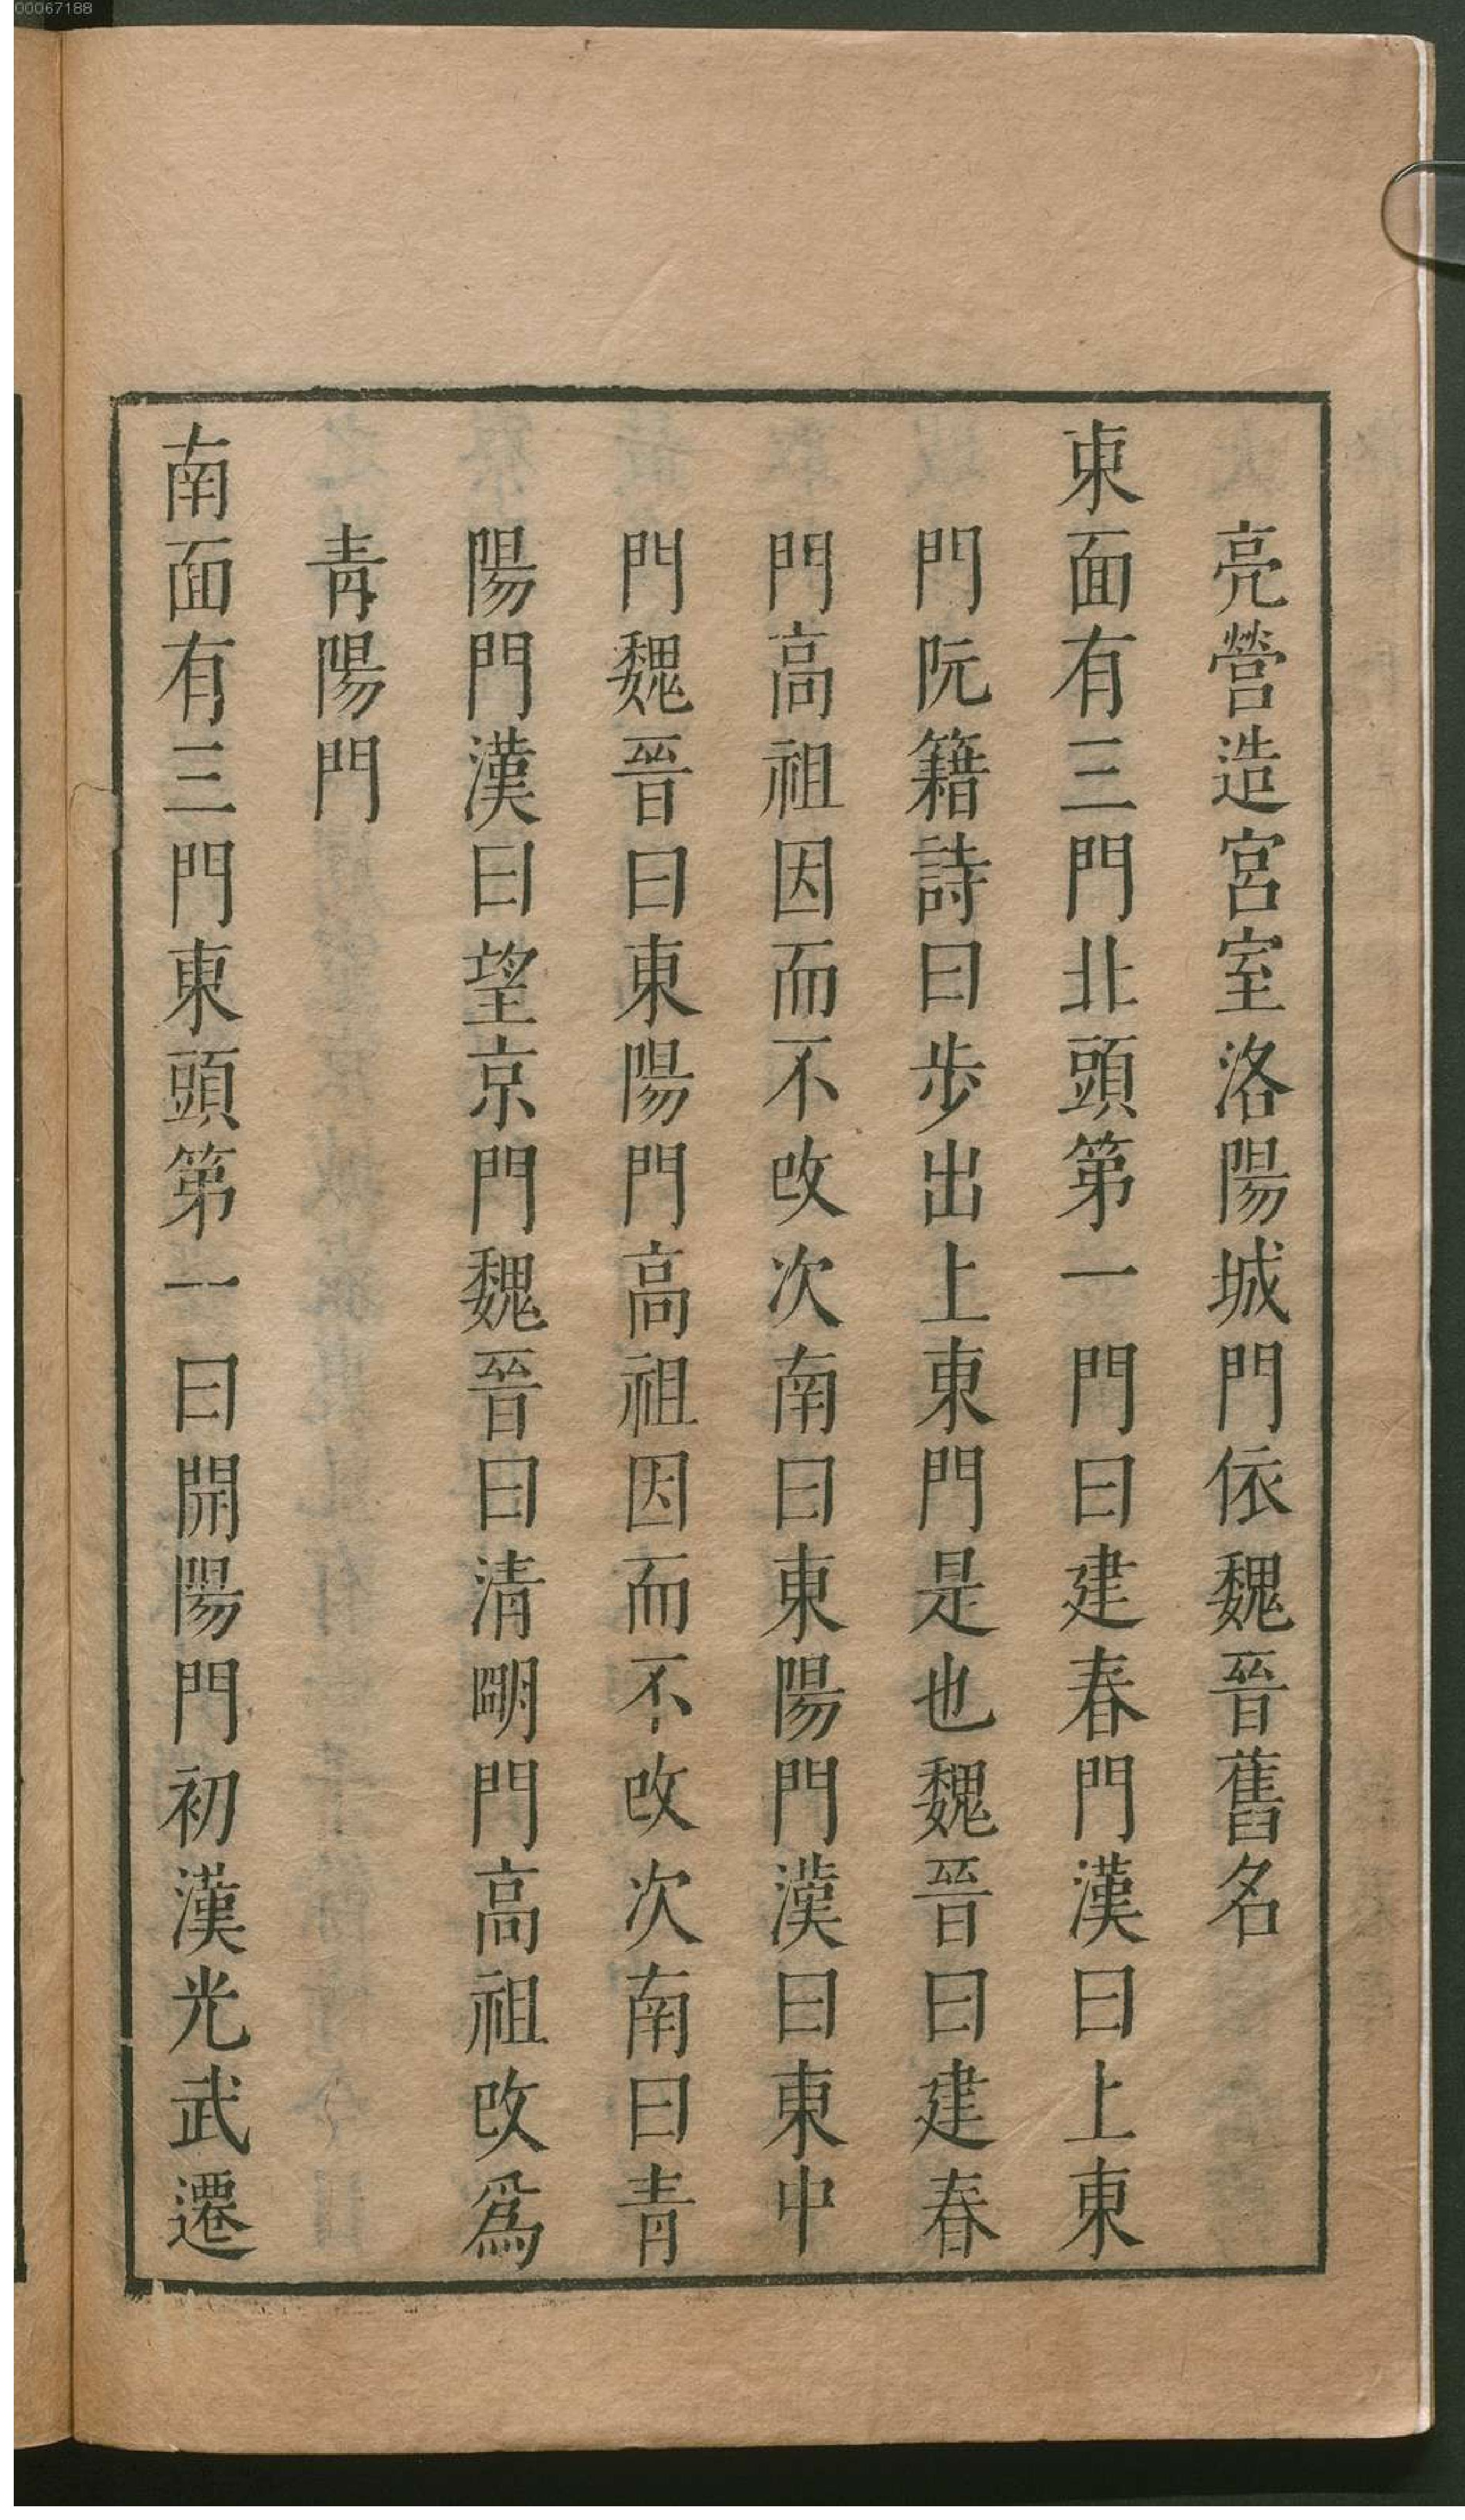 00067188
亮營造宮室洛陽城門依魏晉舊名
東面有三門北頭第一門曰建春門漢曰上東
門阮籍詩曰步出上東門是也魏晉曰建春
門高祖因而不改次南曰東陽門漢曰東中
門魏晉曰東陽門高祖因而不改次南曰青
陽門漢曰望京門魏晉曰清明門高祖改爲
青陽門
南面有三門東頭第一曰開陽門初漢光武遷